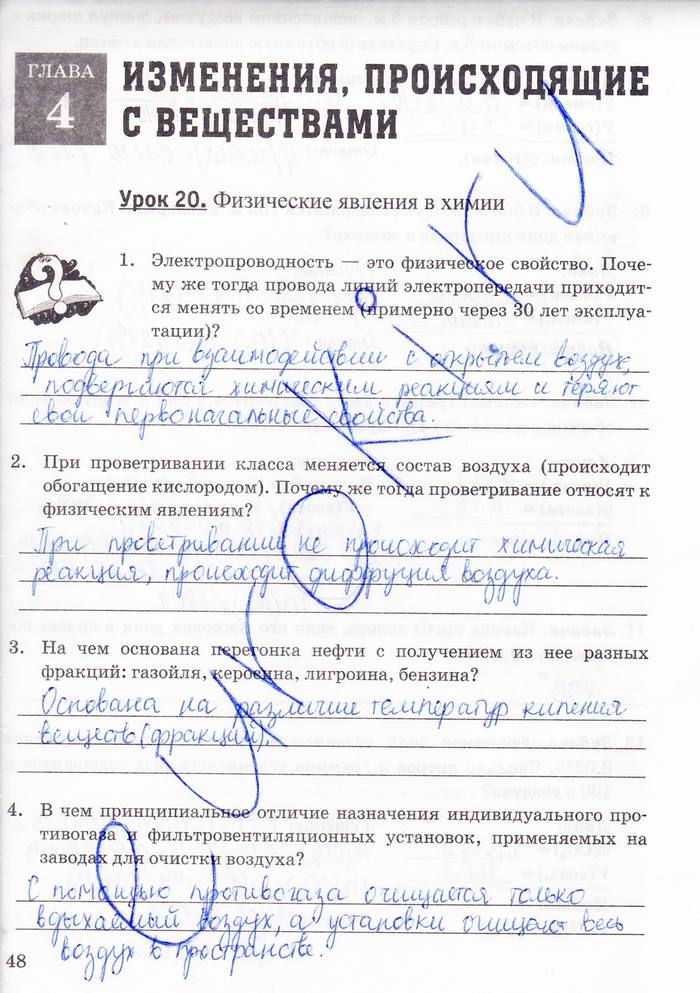 ГЛАВА
4
ИЗМЕНЕНИЯ, ПРОИСХОДЯЩИЕ
С ВЕЩЕСТВАМИ
Урок 20. Физические явления в химии
1. Электропроводность — это физическое свойство. Поче-
му же тогда провода линий электропередачи приходит-
ся менять со временем (примерно через 30 лет эксплуа-
тации)?
Провода при взаимодействии с открытым воздух,
подвергаются химическим реакциям и теряют
свои первоначальные свойства.
2. При проветривании класса меняется состав воздуха (происходит
обогащение кислородом). Почему же тогда проветривание относят к
физическим явлениям?
При проветривании не происходит химическая
реакция, происходит диффузия воздуха.
3. На чем основана перегонка нефти с получением из нее разных
фракций: газойля, керосина, лигроина, бензина?
Основана на различие температур кипения
веществ (фракций).
4. В чем принципиальное отличие назначения индивидуального про-
тивогаза и фильтровентиляционных установок, применяемых на
заводах для очистки воздуха?
С помощью противогаза очищается только
вдыхаемый воздух, а установки очищают весь
воздух в пространстве.
48